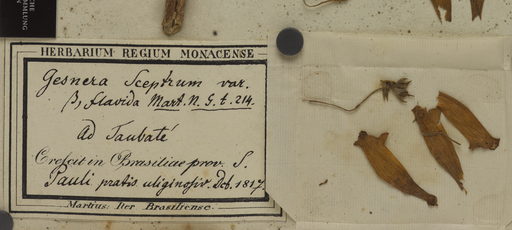 CHE
MMLUNG
HERBARIUM REGIUM MONACENSE
Gesnera Sceptrum var.
β, flavida Mart. N. G. t. 214.
Ad Taubaté
Crescit in Brasiliae prov. S.
Pauli pratis uliginosis. Deb. 1817.
Martius: Iter Brasiliense